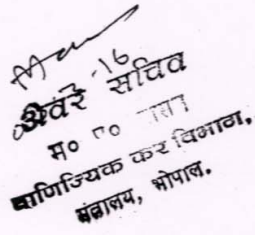 -16
अवर सचिव
म० प्र०
वाणिज्यिक कर विभाग,
मंत्रालय, भोपाल.